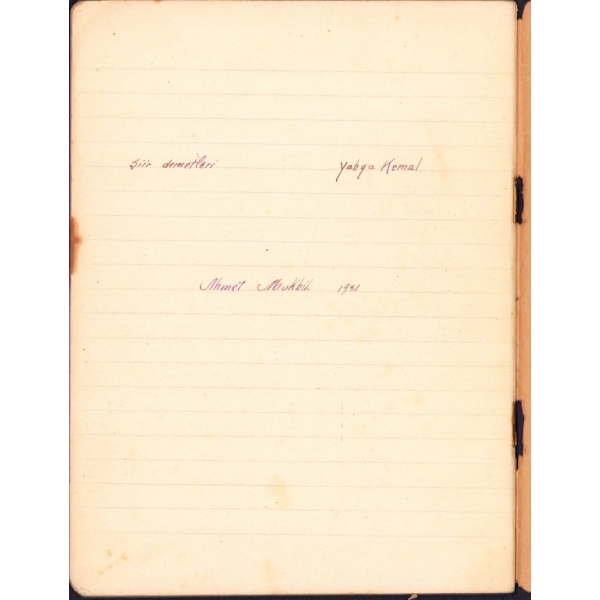 Şiir demetleri Yahya Kemal
Ahmet Mukbil 1931